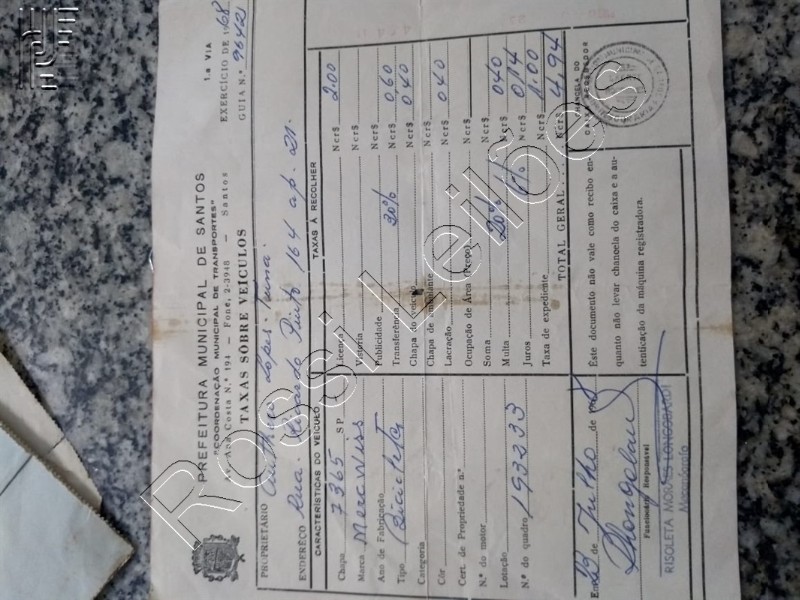 PREFEITURA MUNICIPAL DE SANTOS
"COORDENAÇÃO MUNICIPAL DE TRANSPORTES"
Av. Ana Costa N.º 194 — Fone, 2-3948 — Santos
TAXAS SOBRE VEÍCULOS
1.a VIA
EXERCÍCIO DE 1968
GUIA N.º 9642
PROPRIETÁRIO Lopes
ENDERÊÇO Rua Pinto 164 ap. 21.
CARACTERÍSTICAS DO VEÍCULO
Chapa 7365 SP
Marca Merckwiss
Ano de Fabricação
Tipo Bicicleta
Categoria
Côr
Cert. de Propriedade n.º
N.º do motor
Lotação
N.º do quadro 193233
TAXAS À RECOLHER
Licença Ncr$ 2.00
Vistoria Ncr$
Publicidade Ncr$
Transferência 30% Ncr$ 0,60
Chapa do veículo Ncr$ 0,40
Chapa de ambulante Ncr$
Lacração Ncr$ 040
Ocupação de Área (Preço) Ncr$
Soma Ncr$
Multa 20% Ncr$ 040
Juros % Ncr$ 0,14
Taxa de expediente Ncr$ 1.00
TOTAL GERAL Ncr$ 4,94
Em 23 de Julho de 196
Funcionário Responsável
RISOLETA
Este documento não vale como recibo en-
quanto não levar chancela do caixa e a au-
tenticação da máquina registradora.
CHANCELA DO
CAIXA RECEBEDOR
Rossi Leilões